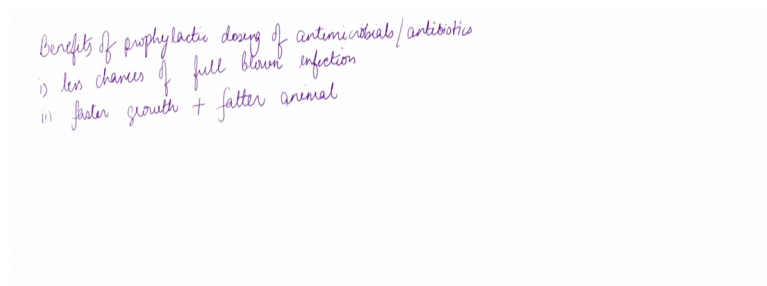 Benefits of prophylactic dosing of antimicrobials/antibiotics
i) less chances of full blown infection
ii) faster growth + fatter animal